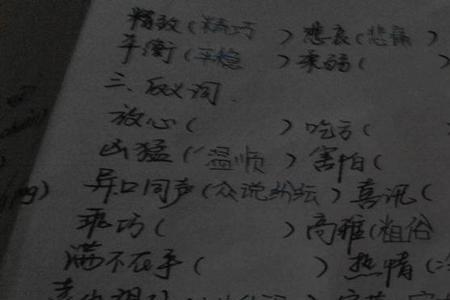 精致(精巧 ) 悲哀(悲痛 )
平衡(平稳 ) 柔弱( )
三、反义词
放心( ) 吃亏(
凶猛(温顺 ) 害怕(
异口同声(众说纷纭) 喜讯(
乖巧( ) 高雅(粗俗
满不在乎( ) 热情(冷